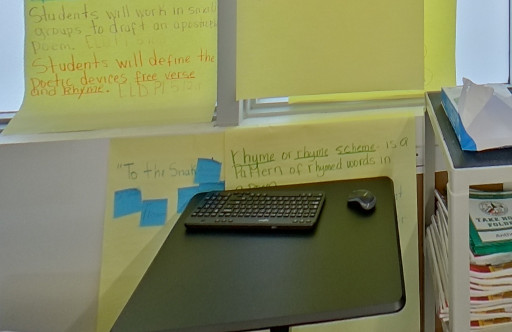 Students will work in small
groups to draft an apostrophe
poem.
Students will define the
Poetic devices free verse
and Rhyme.
"To the Snake
Rhyme or rhyme scheme is a
Pattern of rhymed words in
a poem
TAKE HOME
FOLDER